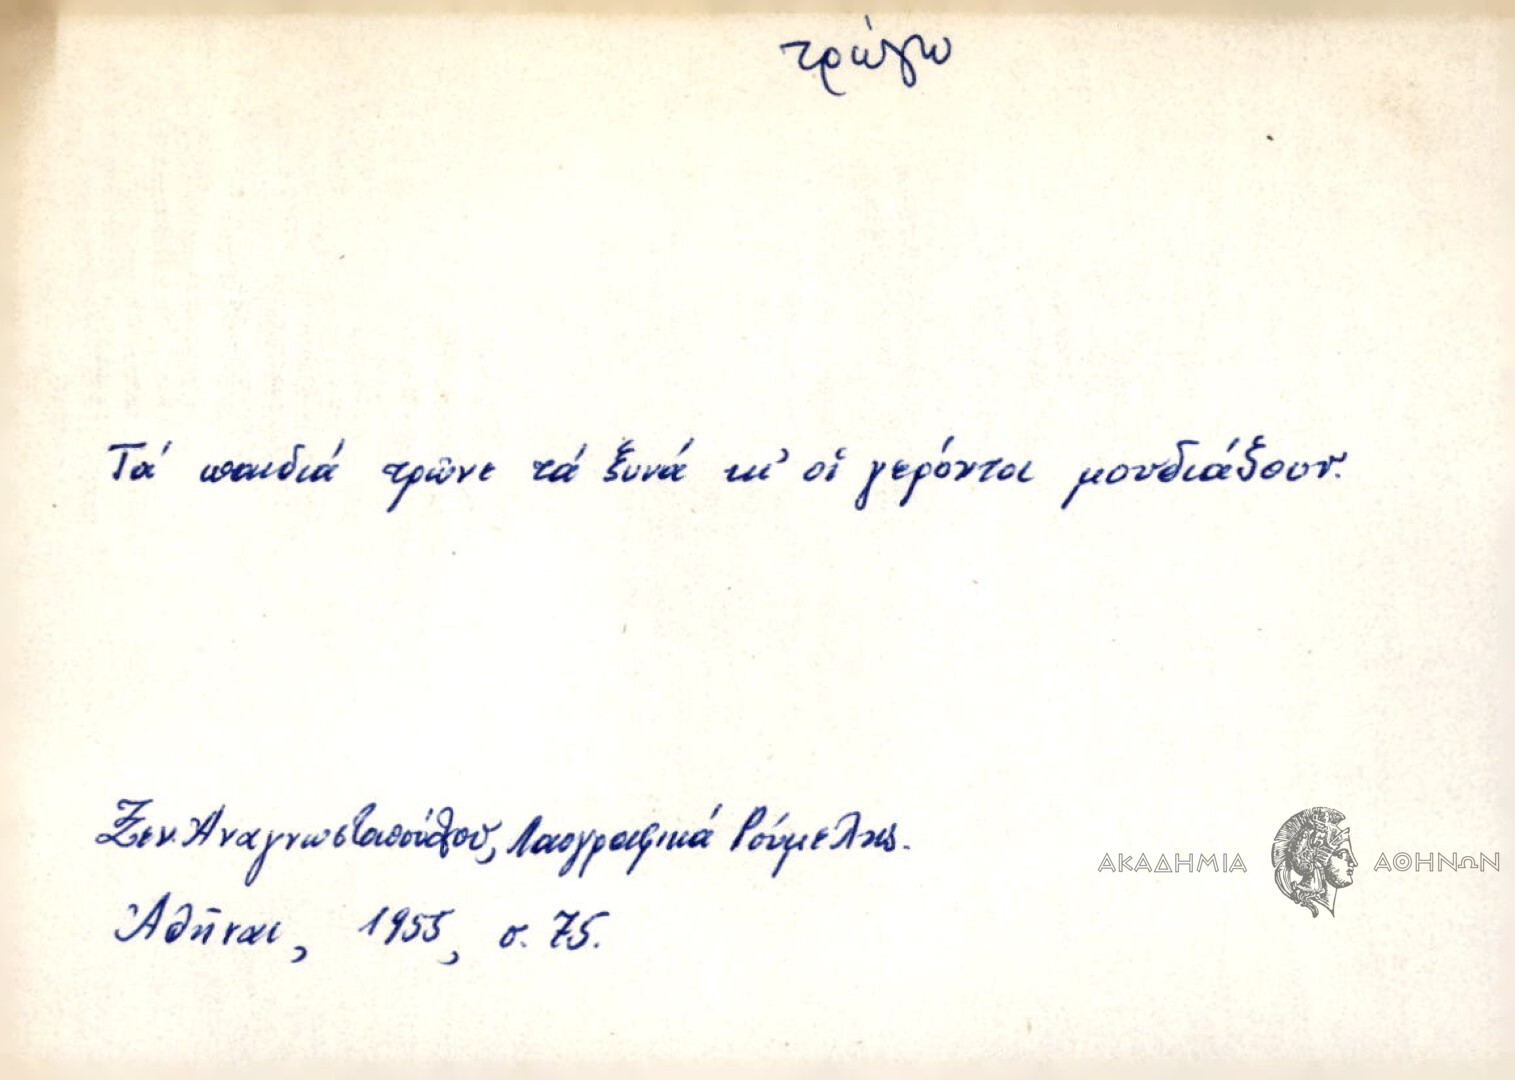 τρώγω
Τά παιδιά τρῶνε τά ξυνά κι' οἱ γερόντοι μουδιάζουν.
Ξεν. Ἀναγνωστοπούλου, Λαογραφικά Ρούμελης.
Ἀθῆναι, 1955, σ. 75.
ΑΚΑΔΗΜΙΑ ΑΘΗΝΩΝ